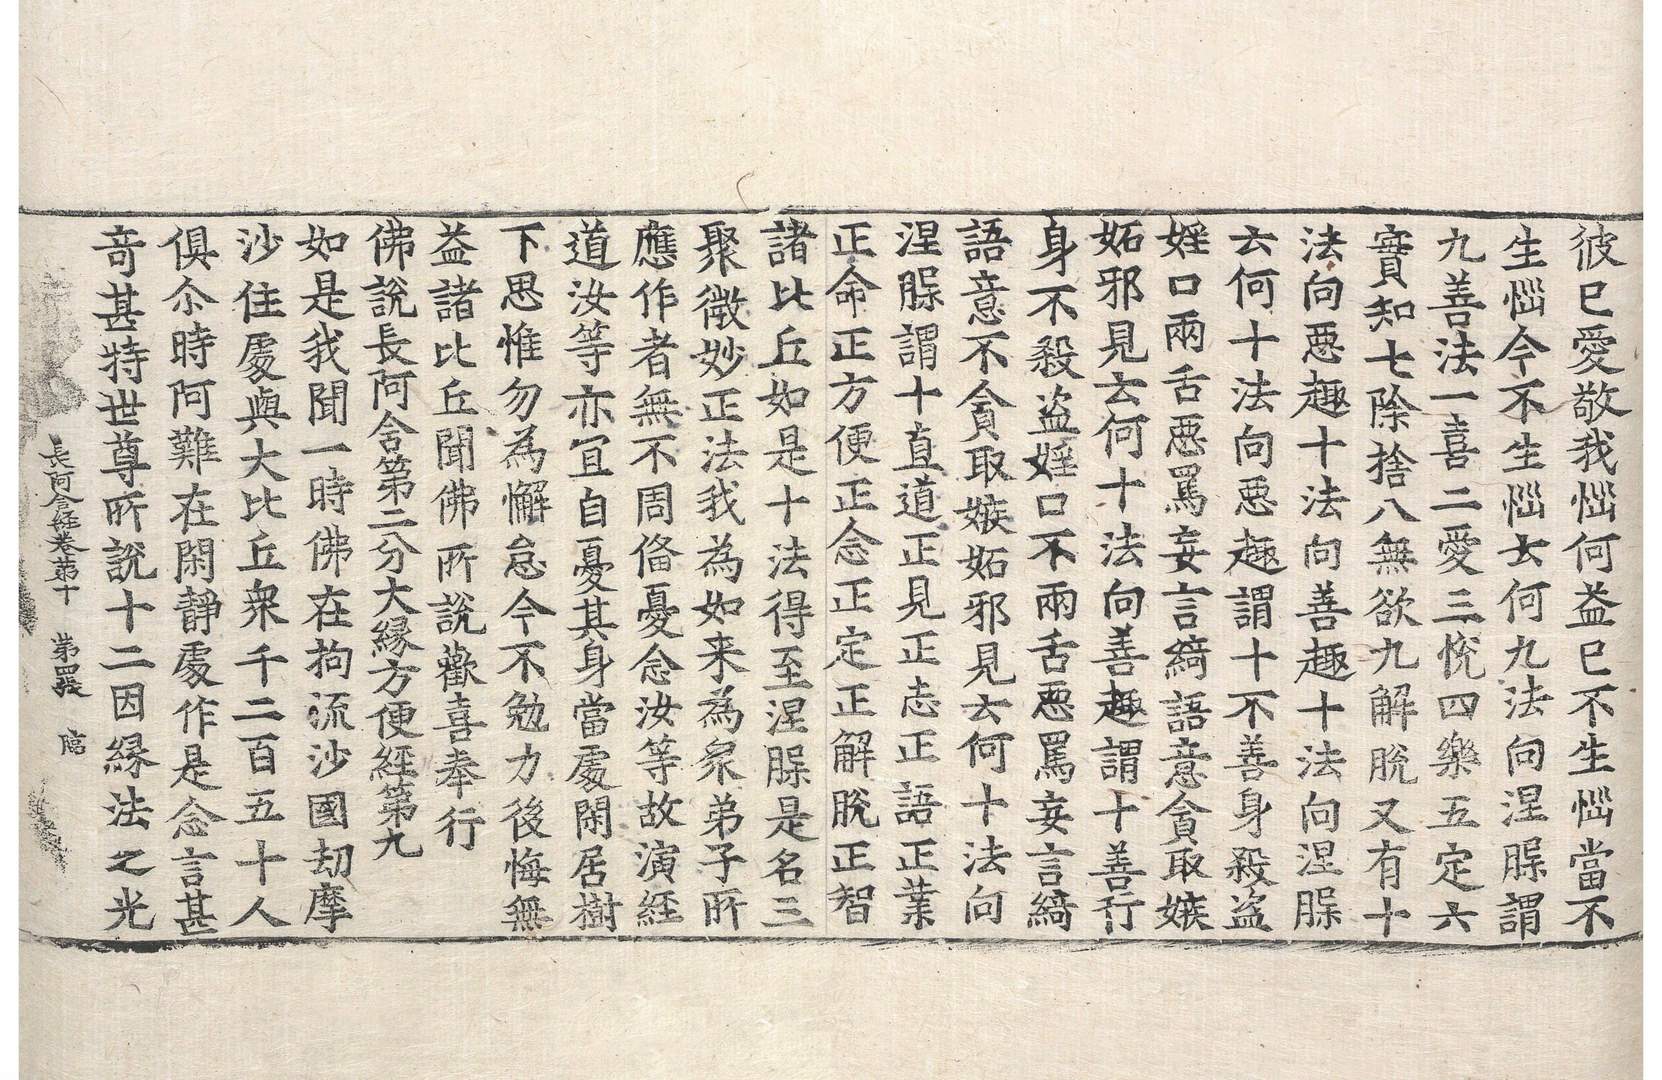 彼已愛敬我𢙉何益已不生𢙉當不
生𢙉今不生𢙉云何九法向涅槃謂
九善法一喜二愛三恱四樂五定六
實知七除捨八無欲九解脫又有十
法向惡趣十法向善趣十法向涅槃
云何十法向惡趣謂十不善身殺盜
婬口兩舌惡罵妄言綺語意貪取嫉
妬邪見云何十法向善趣謂十善行
身不殺盜婬口不兩舌惡罵妄言綺
語意不貪取嫉妬邪見云何十法向
涅槃謂十直道正見正志正語正業
正命正方便正念正定正解脫正智
諸比丘如是十法得至涅槃是名三
聚微妙正法我為如来為衆弟子所
應作者無不周俻憂念汝等故演経
道汝等亦宜自憂其身當處閑居樹
下思惟勿為懈怠今不勉力後悔無
益諸比丘聞佛所說歡喜奉行
佛說長阿含第二分大緣方便経第九
如是我聞一時佛在拘流沙國劫摩
沙住處與大比丘衆千二百五十人
俱尒時阿難在閑靜處作是念言甚
奇甚特世尊所說十二因緣法之光
長阿含経卷第十 第四張